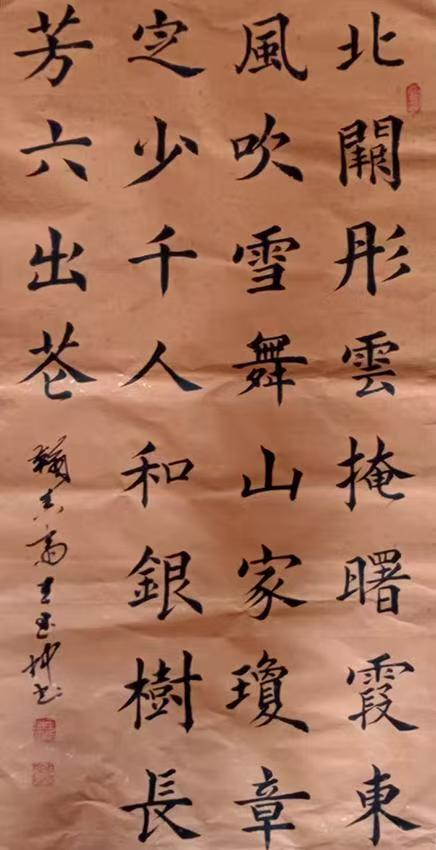 北闕彤雲掩曙霞東
風吹雪舞山家瓊章
定少千人和銀樹長
芳六出花